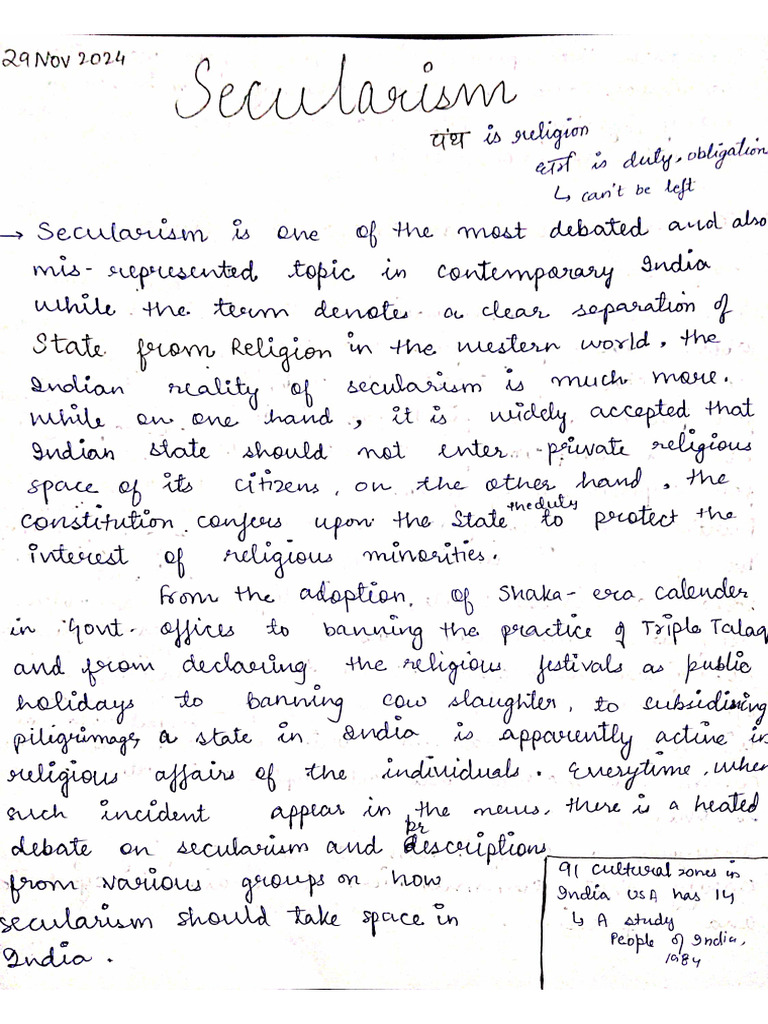 29 Nov 2024
Secularism
पंथ is religion
धर्म is duty, obligation
↳ can't be left
→ Secularism is one of the most debated and also
mis-represented topic in contemporary India
while the term denotes a clear separation of
State from Religion in the western world, the
Indian reality of secularism is much more.
While on one hand, it is widely accepted that
Indian state should not enter private religious
space of its citizens, on the other hand, the
constitution confers upon the State the duty to protect the
interest of religious minorities.
From the adoption, of Shaka-era calender
in Govt. offices to banning the practice of Triple Talaq
and from declaring the religious festivals as public
holidays to banning cow slaughter, to subsidising
piligrimage, a state in India is apparently active in
religious affairs of the individuals. Everytime, when
such incident appear in the news, there is a heated
debate on secularism and prescriptions
from various groups on how
secularism should take space in
India.
91 cultural zones in
India USA has 14
↳ A study
People of India,
1984